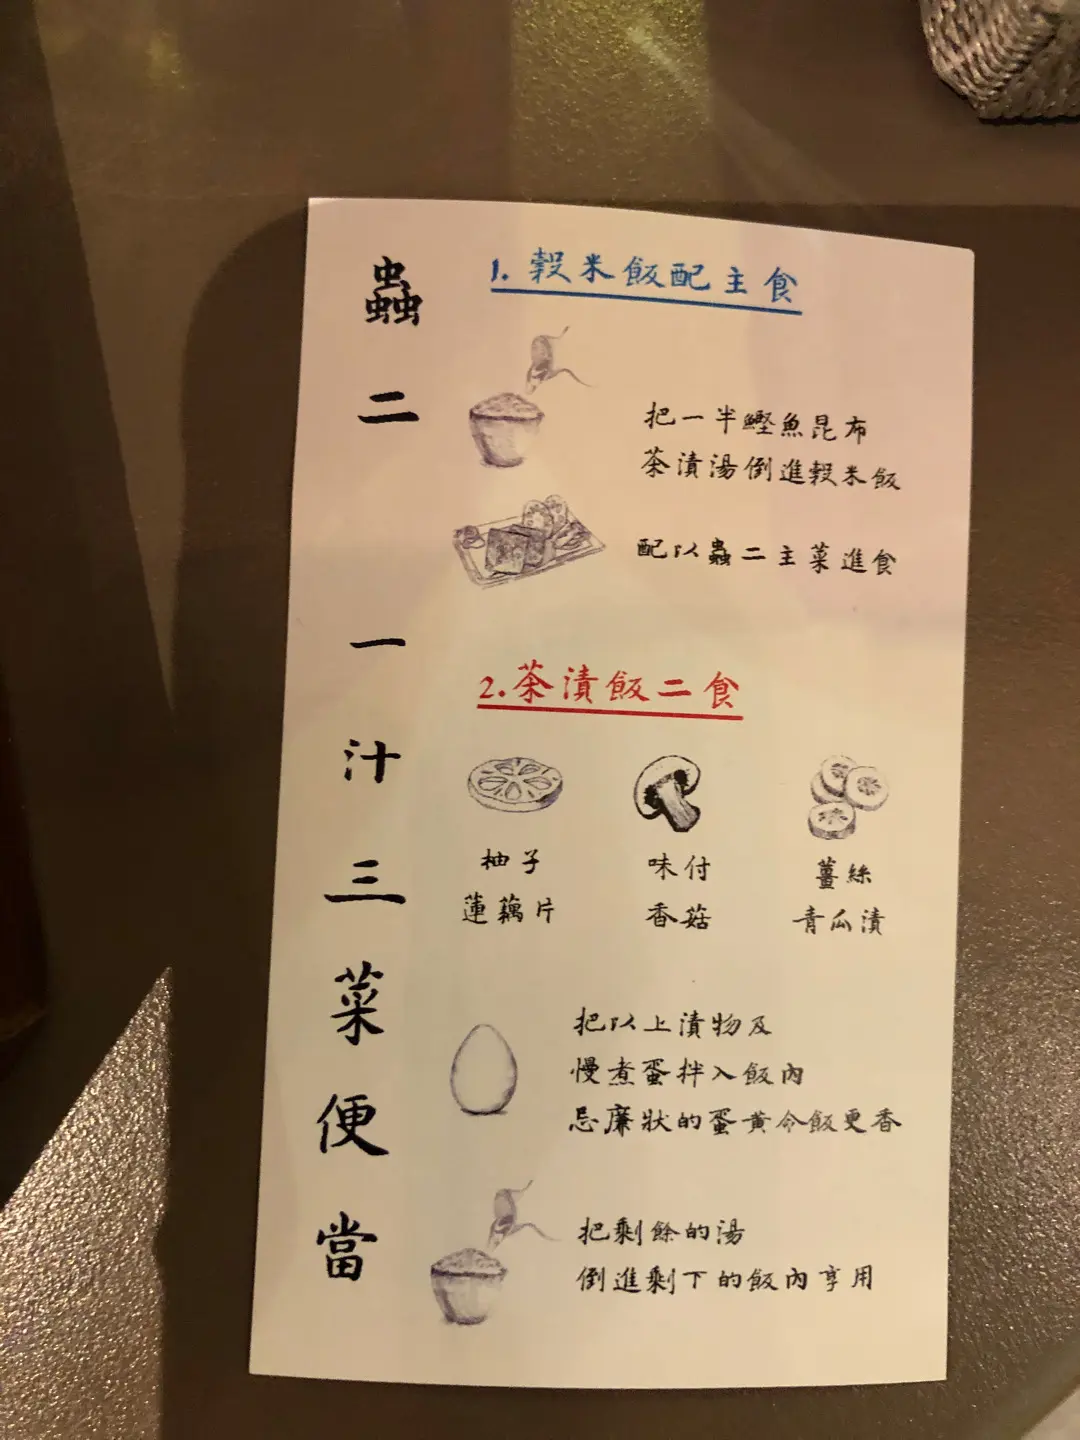 蟲二 一汁三菜便當
1. 穀米飯配主食
把一半鰹魚昆布
茶漬湯倒進穀米飯
配以蟲二主菜進食
2. 茶漬飯二食
柚子
蓮藕片
味付
香菇
薑絲
青瓜漬
把以上漬物及
慢煮蛋拌入飯內
忌廉狀的蛋黃令飯更香
把剩餘的湯
倒進剩下的飯內享用